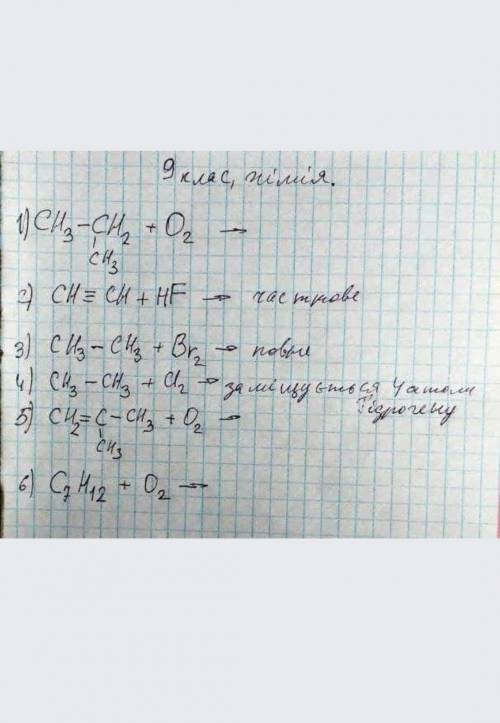 9 клас, хімія.
1) CH₃–CH₂ + O₂ →
CH₃
2) CH≡CH + HF → часткове
3) CH₃–CH₃ + Br₂ → повне
4) CH₃–CH₃ + Cl₂ → заміщується 4 атоми
Гідрогену
5) CH₂=C–CH₃ + O₂ →
CH₃
6) C₇H₁₂ + O₂ →